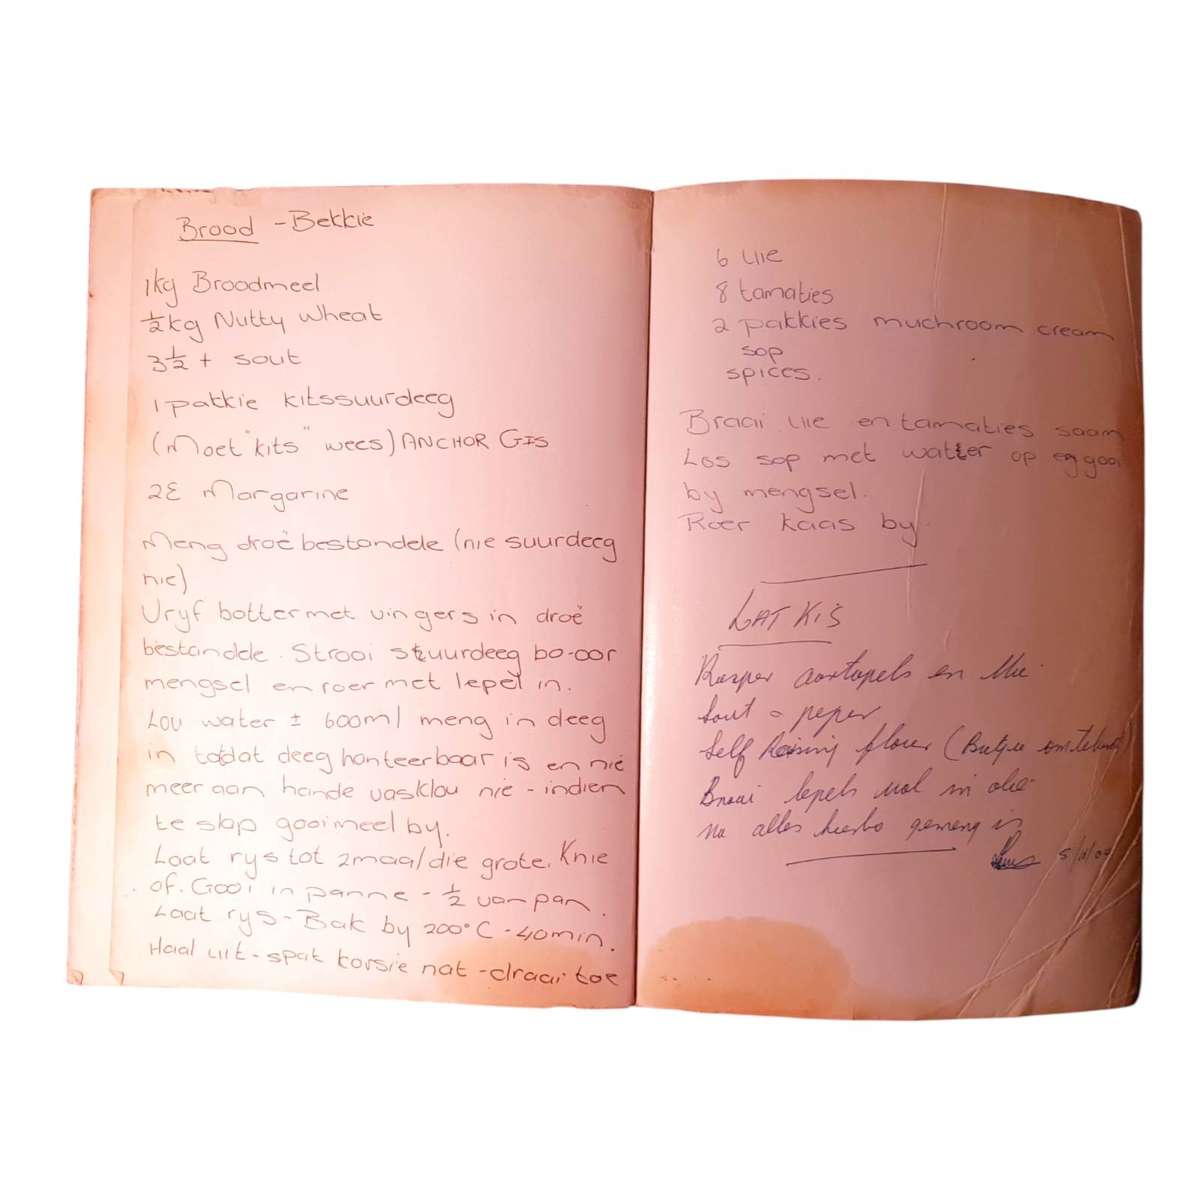 Brood - Bekkie
1kg Broodmeel
½kg Nutty Wheat
3½ t sout
1 pakkie kitssuurdeeg
(Moet "kits" wees) ANCHOR GIS
2E Margarine
Meng droë bestandele (nie suurdeeg
nie)
Vryf botter met vingers in droë
bestandele. Strooi suurdeeg bo-oor
mengsel en roer met lepel in.
Lou water ± 600ml meng in deeg
in totdat deeg hanteerbaar is en nie
meer aan hande vasklou nie - indien
te slap gooi meel by.
Laat rys tot 2maal die grote. Knie
af. Gooi in panne - ½ van pan.
Laat rys - Bak by 200°C - 40min.
Haal uit - spat korsie nat - draai toe
6 uie
8 tamaties
2 pakkies muchroom cream
sop
spices.
Braai uie en tamaties saam
Los sop met water op en gooi
by mengsel.
Roer kaas by.
LATKIS
Rasper aartapels en Uie
Sout - peper
Self Raising flour (Bietjie om te bind)
Braai lepels vol in olie
na alles hierbo gemeng is